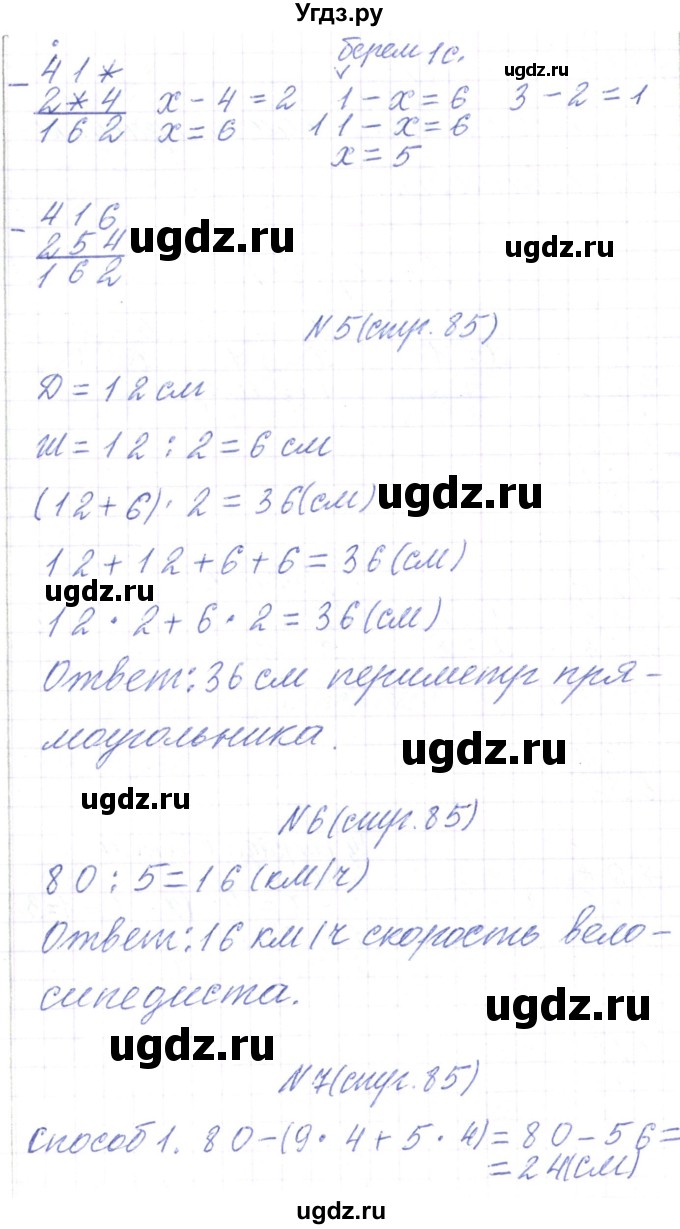 Угдз.ру
берем 1с.
- 41*
2*4 x - 4 = 2 1 - x = 6 3 - 2 = 1
162 x = 6 11 - x = 6
x = 5
ugdz.ru
- 416
254
162
ugdz.ru
ugdz.ru
N5(стр. 85)
Д = 12 см
Ш = 12 : 2 = 6 см
(12 + 6) · 2 = 36(см)
ugdz.ru
12 + 12 + 6 + 6 = 36(см)
ugdz.ru
12 · 2 + 6 · 2 = 36(см)
Ответ: 36 см периметр пря-
моугольника.
ugdz.ru
ugdz.ru
N6(стр. 85)
80 : 5 = 16(км/ч)
Ответ: 16 км/ч скорость вело-
сипедиста.
ugdz.ru
ugdz.ru
N7(стр. 85)
Способ 1. 80 - (9 · 4 + 5 · 4) = 80 - 56 =
= 24(см)
ugdz.ru
ugdz.ru